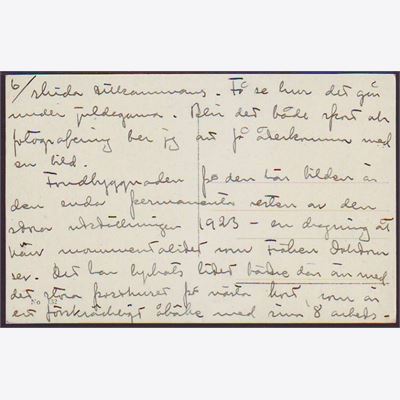 6/ skida tillsammans. Få se hur det går
under juldagarna. Blir det både sport och
fotografering ber jag att få återkomma med
en bild.
Fondbyggnaden på den här bilden är
den enda permanenta resten av den
stora utställningen 1923 – en dragning åt
monumentalitet som Fröken Doktorn
ser. Det har lyckats litet bättre där än med
det stora posthuset på nästa kort, som är
ett förskräckligt åbäke med sina 8 arbets-
No 32